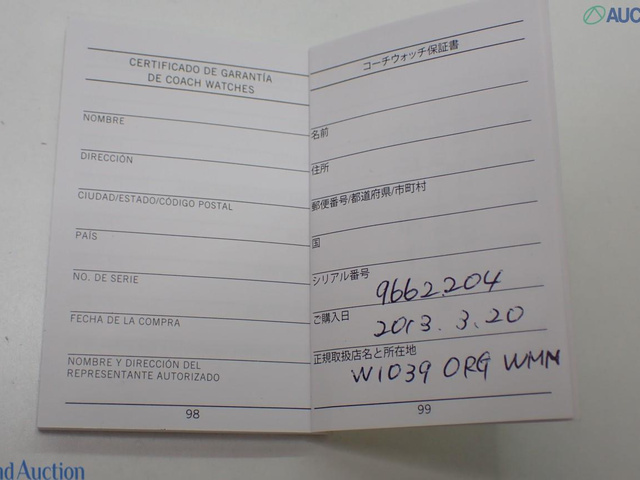 CERTIFICADO DE GARANTÍA
DE COACH WATCHES
NOMBRE
DIRECCIÓN
CIUDAD/ESTADO/CÓDIGO POSTAL
PAÍS
NO. DE SERIE
FECHA DE LA COMPRA
NOMBRE Y DIRECCIÓN DEL
REPRESENTANTE AUTORIZADO
98
コーチウォッチ保証書
名前
住所
郵便番号/都道府県/市町村
国
シリアル番号
9662.204
ご購入日
2013.3.20
正規取扱店名と所在地
W1039 ORG WMN
99
AUC
nd Auction